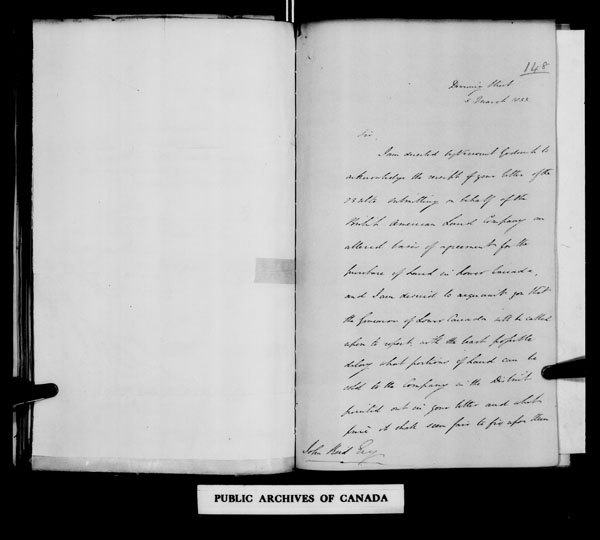 148
Downing Street
5 March 1833
Sir,
I am directed by Viscount Goderich to
acknowledge the receipt of your letter of the
28 ulto submitting on behalf of the
British American Land Company an
altered basis of agreement for the
purchase of Land in Lower Canada,
and I am desired to acquaint you that
the Governor of Lower Canada will be called
upon to report with the least possible
delay what portions of Land can be
sold to the Company in the District
pointed out in your letter and what
price it shall seem fair to fix upon them
John Reid Esq
PUBLIC ARCHIVES OF CANADA